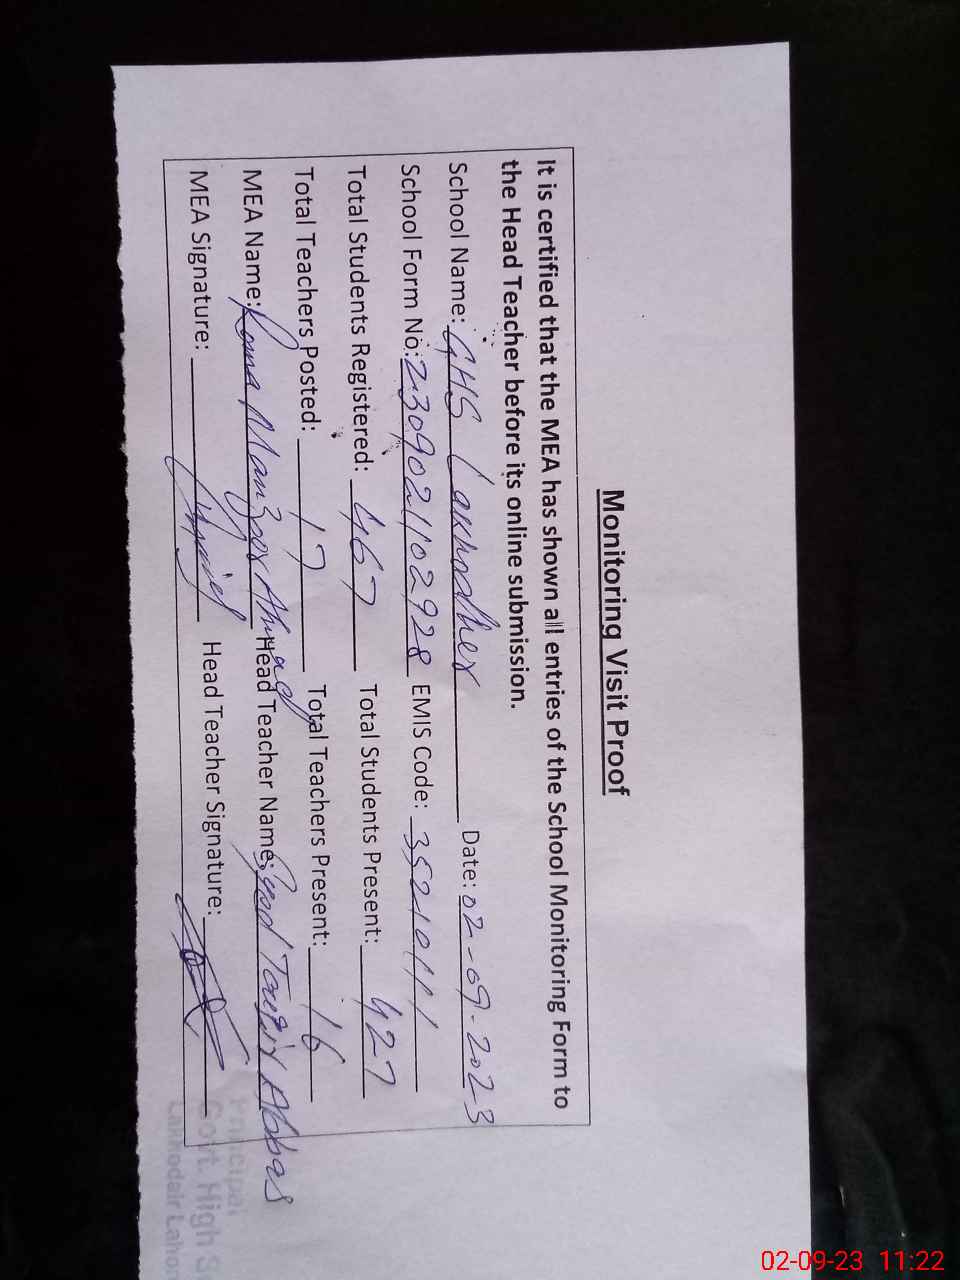 Monitoring Visit Proof
It is certified that the MEA has shown all entries of the School Monitoring Form to
the Head Teacher before its online submission.
School Name: GHS Lakhodher Date: 02-09-2023
School Form No: 2309021102928 EMIS Code: 35210111
Total Students Registered: 467 Total Students Present: 427
Total Teachers Posted: 17 Total Teachers Present: 16
MEA Name: Rana Manzoor Ahmad Head Teacher Name: Syed Touqir Abbas
MEA Signature: Head Teacher Signature:
Principal
Govt. High
Lakhodair Lahor
02-09-23 11:22